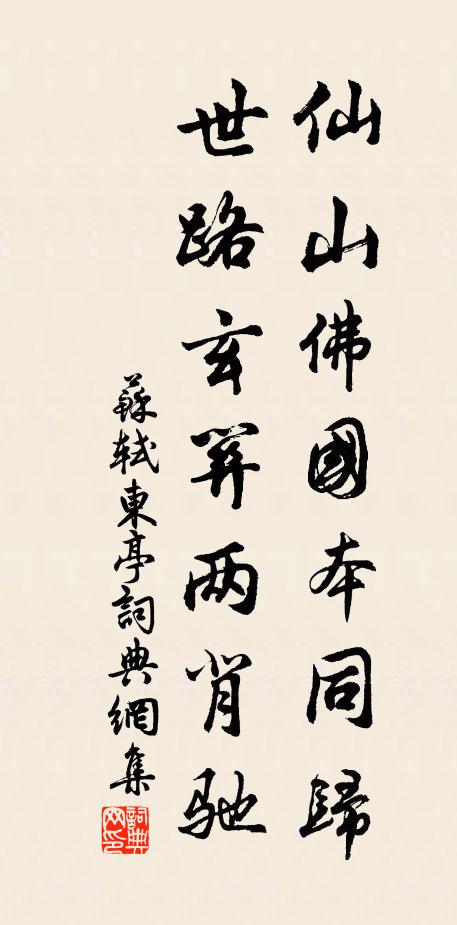 仙山佛國本同歸
世路玄關兩背馳
蘇軾東亭詞典網集
詞典网印